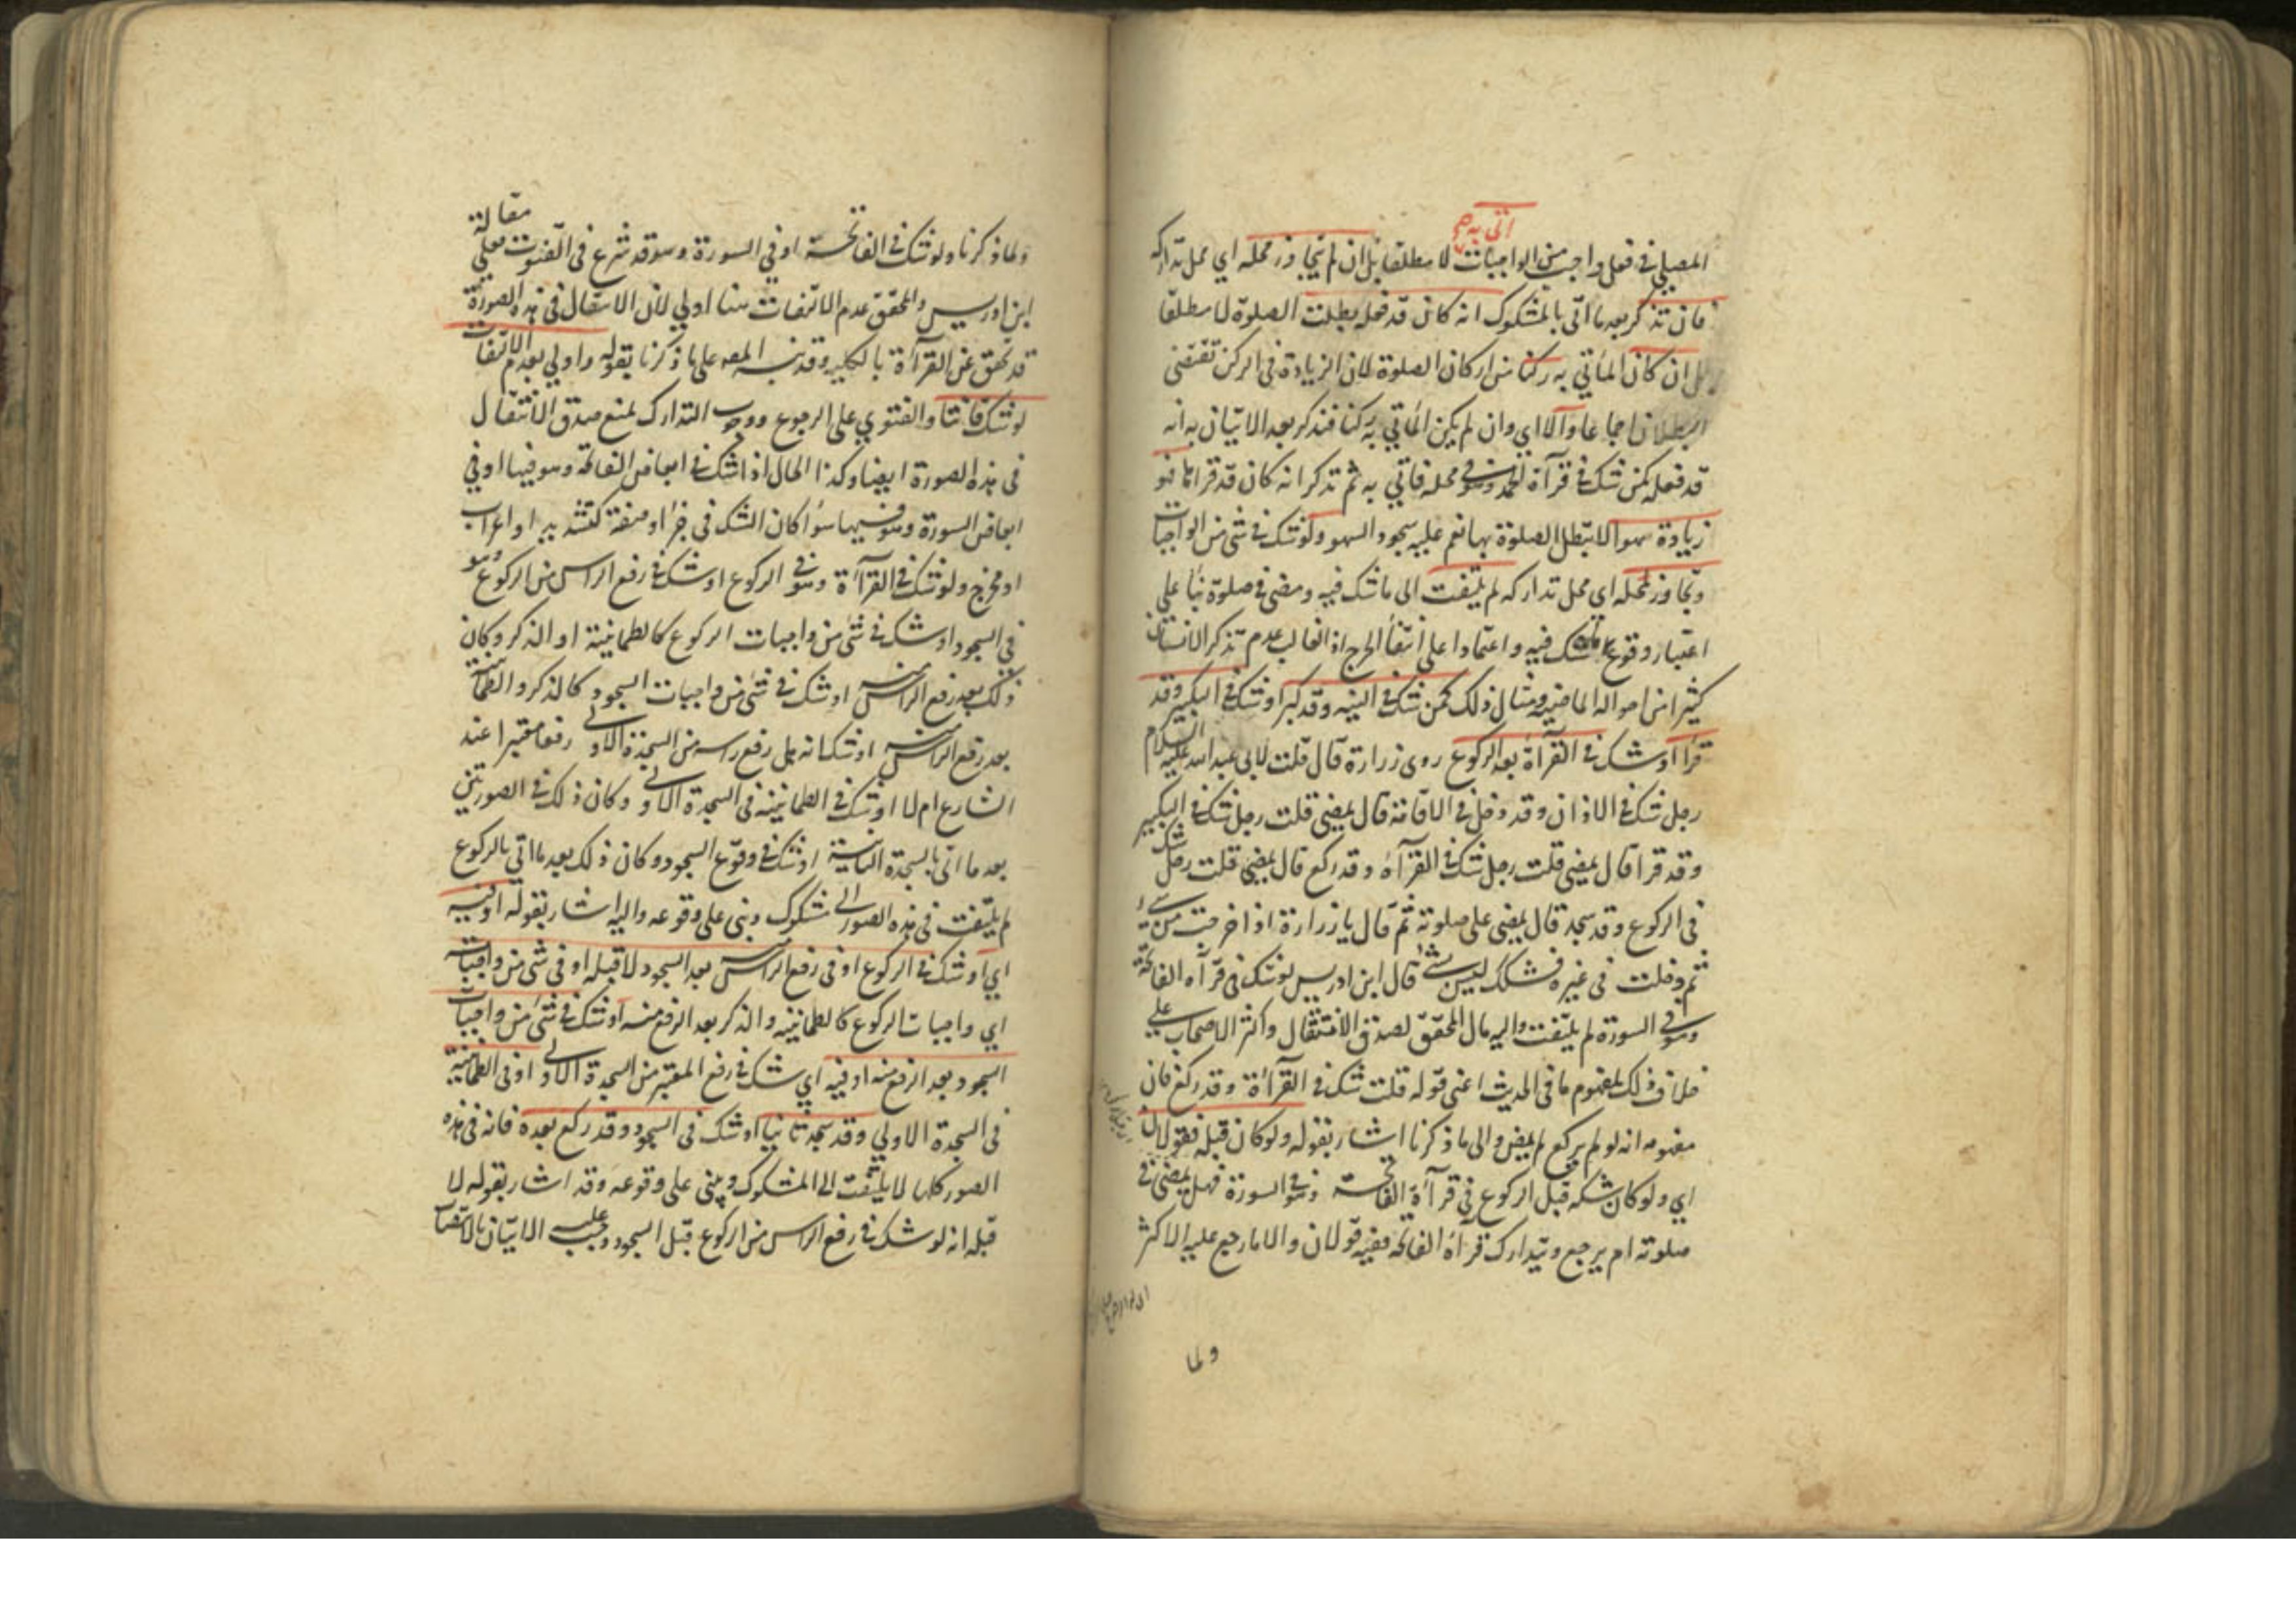 اتى به صح
المصلي في فعل واجب من الواجبات لا مطلقا بل ان لم يتجاوز محله اي محل تداركه
فان تذكر بعد ما اتى بالمشكوك انه كان قد فعله بطلت الصلوة لا مطلقا
بل ان كان المأتي به ركنا من اركان الصلوة لان الزيادة في الركن تقتضى
البطلان اجماعا والا اي وان لم يكن المأتي به ركنا فتذكر بعد الاتيان به انه
قد فعله كمن شك في قرآءة الحمد وهو في محله فاتي به ثم تذكر انه كان قد قرأها فهو
زيادة سهوا لا تبطل الصلوة بها نعم عليه سجود السهو ولو شك في شئ من الواجبات
وتجاوز محله اي محل تداركه لم يلتفت الى ما شك فيه ومضى في صلوته بنآء على
اعتبار وقوع ما شك فيه واعتمادا على انتفآء الحرج اذ الغالب عدم تذكر الانسان
كثيرا من احواله الماضيه ومثال ذلك كمن شك في النيه وقد كبر او شك في التكبير وقد
قرأ او شك في القرآءة بعد الركوع روى زرارة قال قلت لابي عبد الله عليه السلام
رجل شك في الاذان وقد دخل في الاقامة قال يمضى قلت رجل شك في التكبير
وقد قرأ قال يمضى قلت رجل شك في القرآءة وقد ركع قال يمضى قلت رجل شك
في الركوع وقد سجد قال يمضى على صلوته ثم قال يا زرارة اذا خرجت من شئ
ثم دخلت في غيره فشكك ليس بشئ قال ابن ادريس لو شك في قرآءة الفاتحة
وهو في السورة لم يلتفت واليه مال المحقق لصدق الانتقال واكثر الاصحاب على
خلاف ذلك لمفهوم ما في الحديث اعنى قوله قلت شك في القرآءة وقد ركع فان
مفهومه انه لو لم يركع لم يمض والى ما ذكرنا اشار بقوله ولو كان قبله فقولان
اي ولو كان شكه قبل الركوع في قرآءة الفاتحة وهو في السورة فهل يمضى في
صلوته ام يرجع ويتدارك قرآءة الفاتحه ففيه قولان والاصح ما رجع عليه الاكثر
ولما
ولما ذكرنا ولو شك في الفاتحة او في السورة وهو قد شرع في القنوت فعلى مقالة
ابن ادريس والمحقق عدم الالتفات هنا اولي لان الانتقال في هذه الصورة
قد تحقق عن القرآءة بالكليه وقد نبه المصه على ما ذكرنا بقوله واولي بعدم الالتفات
لو شك قانتا والفتوي على الرجوع ووجوب التدارك لمنع صدق الانتقال
في هذه الصورة ايضا وكذا الحال اذا شك في ابعاض الفاتحة وهو فيها او في
ابعاض السورة وهو فيها سوآء كان الشك في جزء او صفة كتشديد او اعراب
او مخرج ولو شك في القرآءة وهو في الركوع او شك في رفع الراس من الركوع وهو
في السجود او شك في شئ من واجبات الركوع كالطمانينة او الذكر وكان
ذلك بعد رفع الراس منه او شك في شئ من واجبات السجود كالذكر والطمانينة
بعد رفع الراس منه او شك انه هل رفع راسه من السجدة الاولى رفعا معتبرا عند
الشارع ام لا او شك في الطمانينه في السجدة الاولى وكان ذلك في الصورتين
بعد ما اتى بالسجدة الثانية او شك في وقوع السجود وكان ذلك بعد ما اتى بالركوع
لم يلتفت في هذه الصور الى مشكوك وبنى على وقوعه واليه اشار بقوله او فيه
اي او شك في الركوع او في رفع الراس منه بعد السجود لا قبله او في شئ من واجباته
اي واجبات الركوع كالطمانينه والذكر بعد الرفع منه او شك في شئ من واجبات
السجود بعد الرفع منه او فيه اي شك في رفع المعتبر من السجدة الاولى او في الطمانينة
في السجدة الاولي وقد سجد ثانيا او شك في السجود وقد ركع بعده فانه في هذه
الصور كلها لا يلتفت الى المشكوك ويبنى على وقوعه وقد اشار بقوله لا
قبله انه لو شك في رفع الراس من الركوع قبل السجود وجب عليه الاتيان بالانتصاب